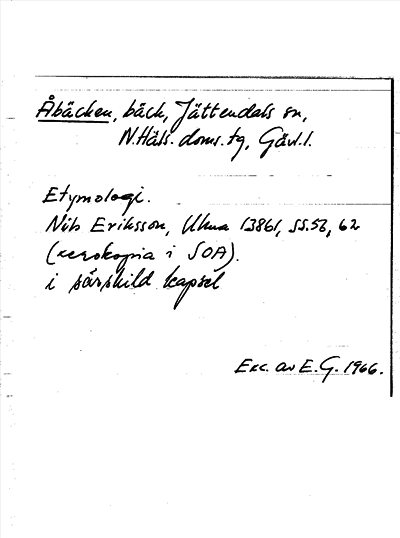 Åbäcken, bäck, Jättendals sn,
N.Häls. doms. tg, Gävl.l.
Etymologi.
Nils Eriksson, Uluna 13861, ss.53, 62
(xerokopia i SOA).
i särskild kapsel
Exc. av E.G. 1966.